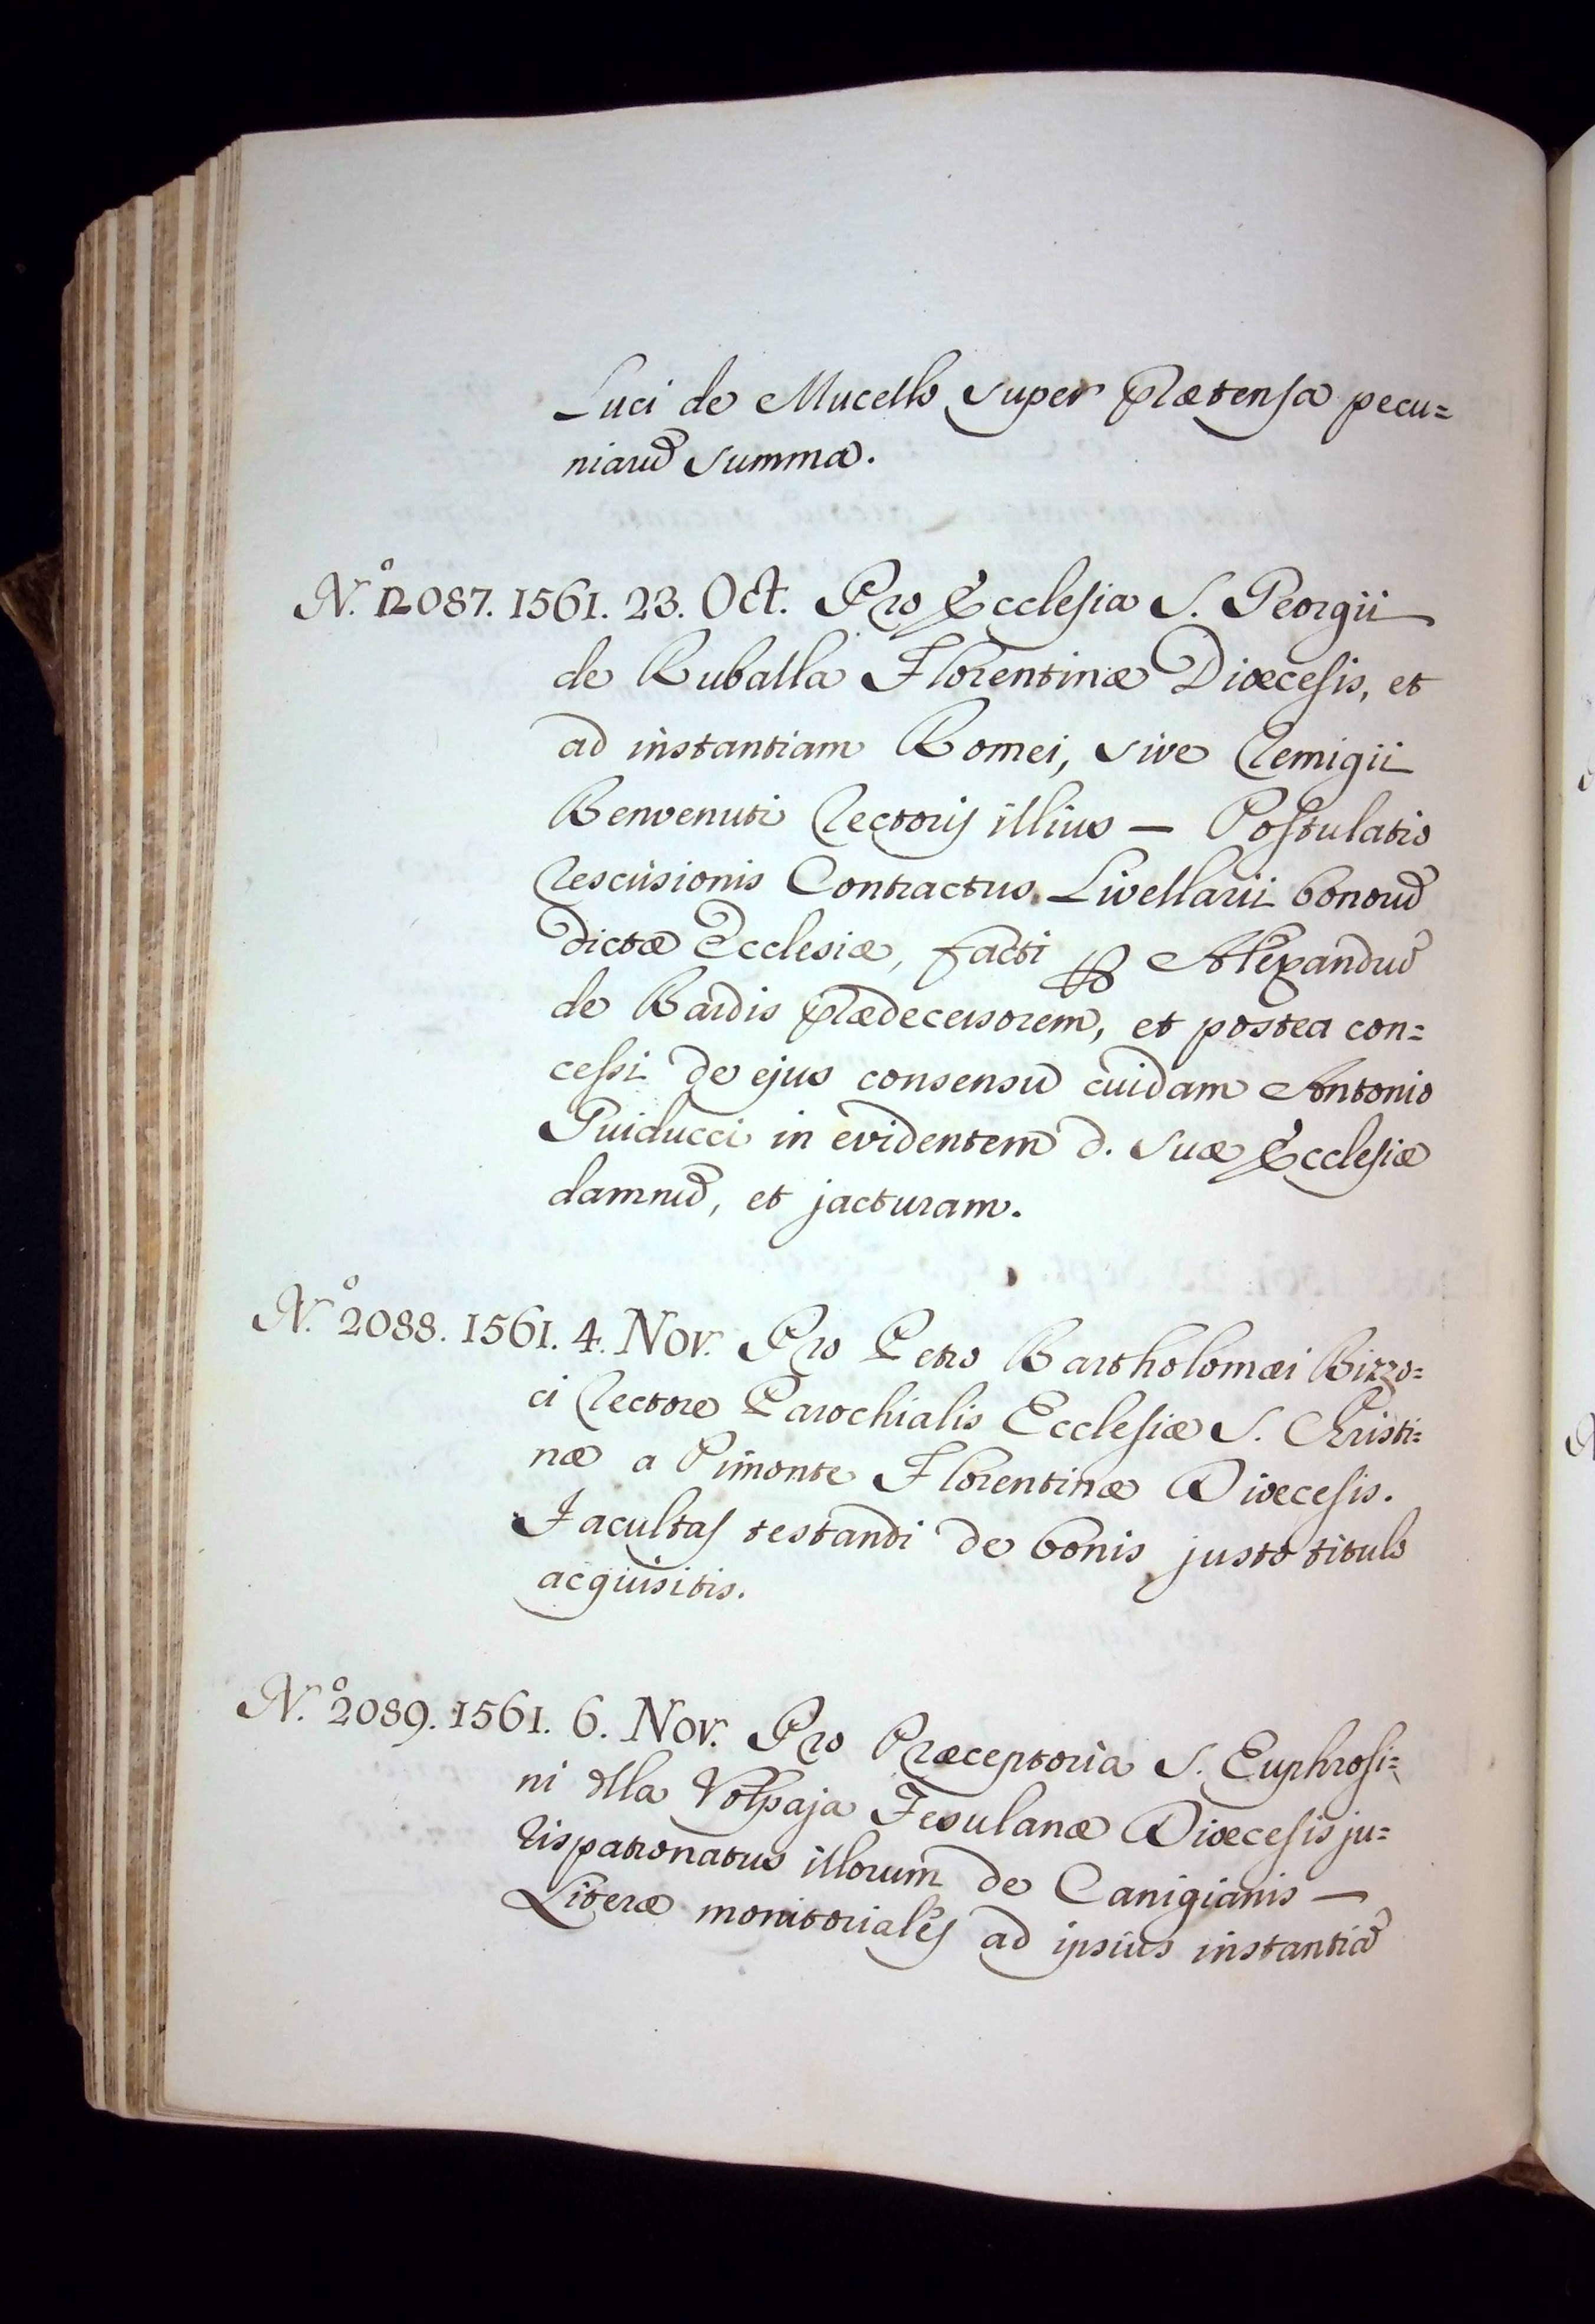 Luci de Mucello super prætensa pecu=
niarũ summa.
N.º 2087. 1561. 23. Oct. Pro Ecclesia S. Georgii
de Ruballa Florentinæ Diœcesis, et
ad instantiam Romei, sive Remigii
Benvenuti Rectoris illius — Postulatio
Rescissionis Contractus Livellarii bonorũ
dictæ Ecclesiæ, facti ꝑ Alexandrũ
de Bardis prædecessorem, et postea con=
cessi de ejus consensu cuidam Antonio
Guiducci in evidentem d. suæ Ecclesiæ
damnũ, et jacturam.
N.º 2088. 1561. 4. Nov. Pro Petro Bartholomæi Bizzo=
ci Rectore Parochialis Ecclesiæ S. Christi=
næ a Pimonte Florentinæ Diœcesis.
Facultas testandi de bonis justo titulo
acquisitis.
N.º 2089. 1561. 6. Nov. Pro Præceptoria S. Euphrosi=
ni dlla Volpaja Fesulanæ Diœcesis ju=
rispatronatus illorum de Canigianis —
Literæ monitoriales ad ipsius instantiã